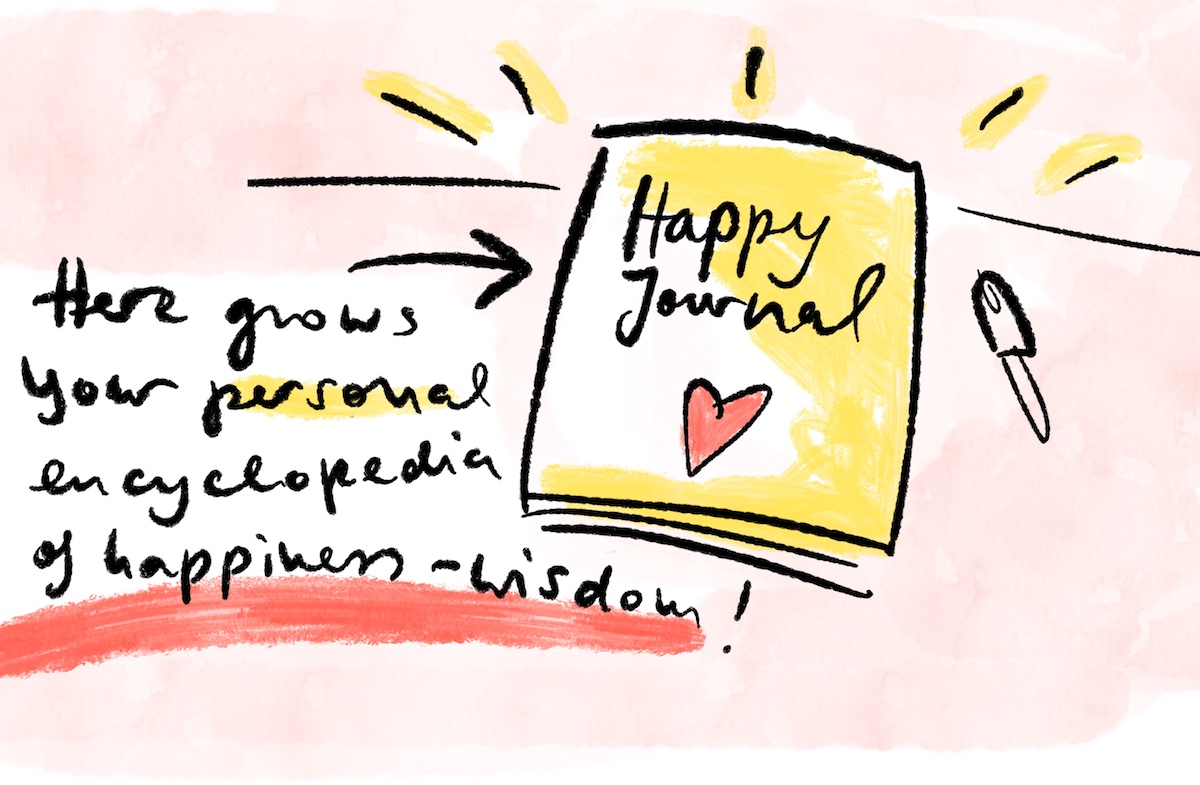 Happy
Journal
Here grows
your personal
encyclopedia
of happiness-wisdom!